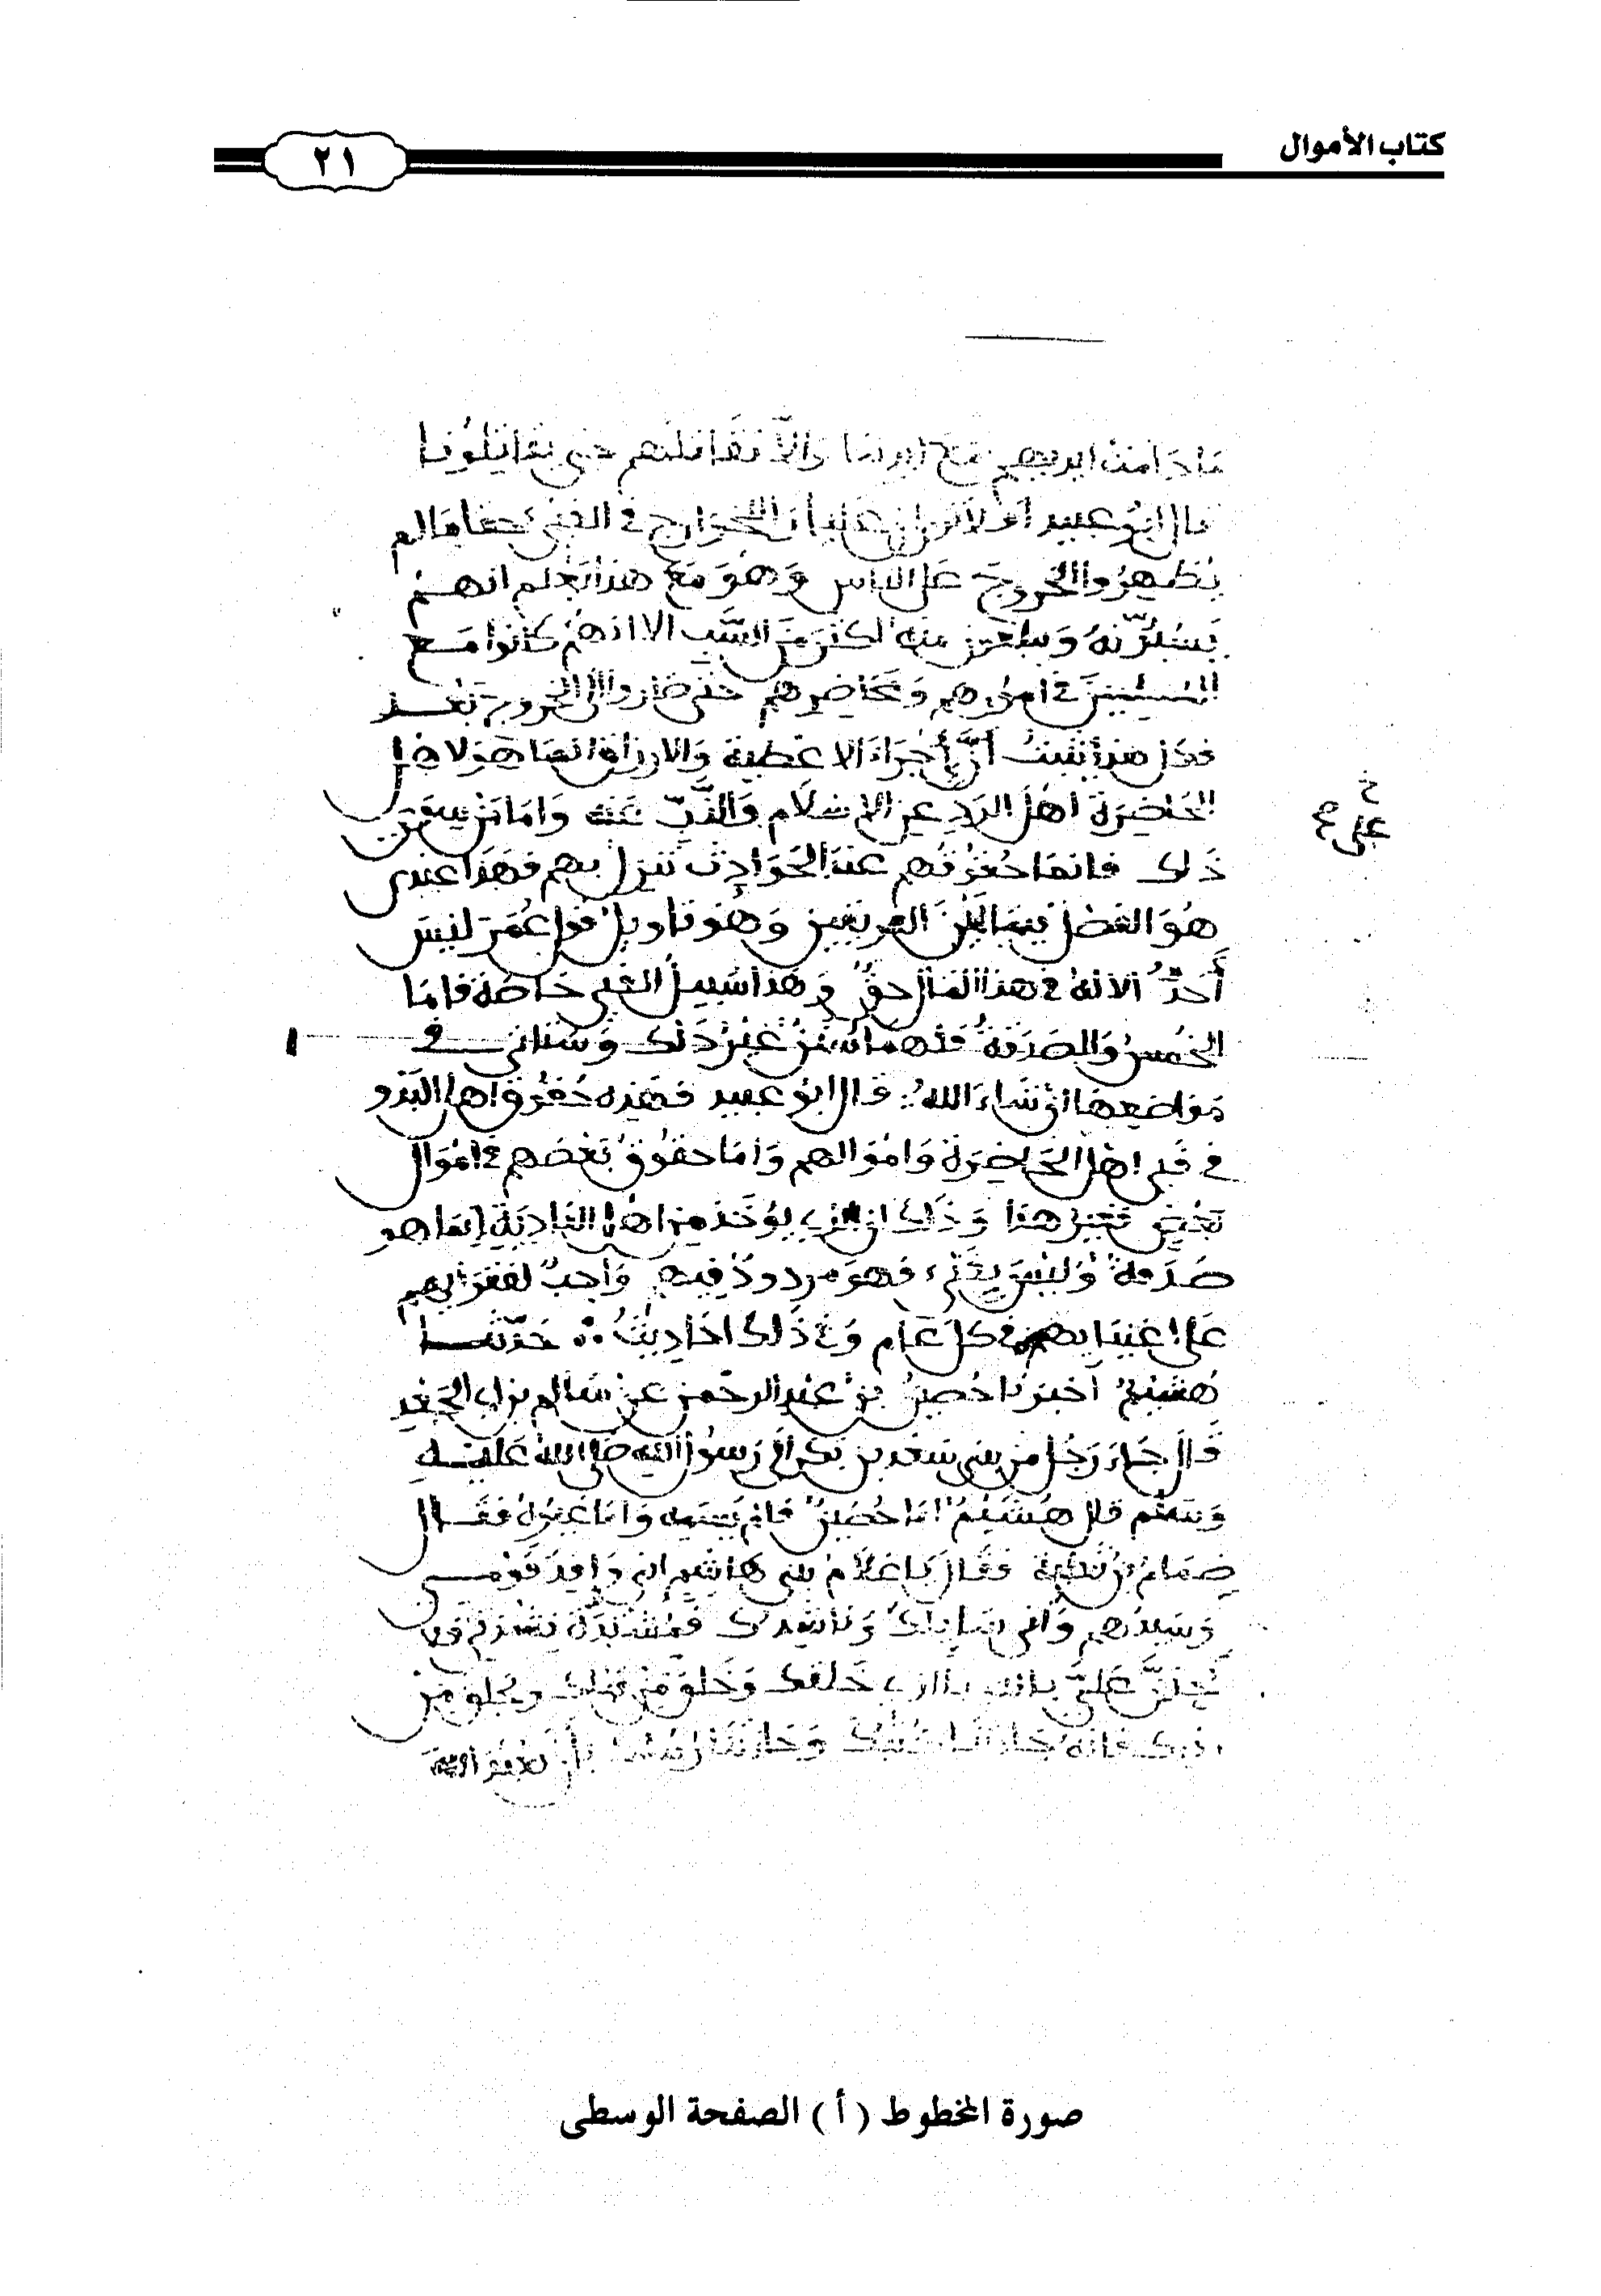 كتاب الأموال
٢١
مادامت ايديهم مع ايدينا والا نقاتلهم حتى يقاتلونا
قال ابو عبيد افلا ترى ان عليا راى للخوارج في الفيء حقا ما لم
يظهروا الخروج على الناس وهو مع هذا يعلم انهم
يسبونه ويبلغون منه اكثر من السب الا انهم كانوا مع
المسلمين في امورهم ومحاضرهم حتى صاروا الى الخروج بعد
فكل هذا يثبت أنّ إجراء الاعطية والارزاق انما هو لاهل
الحاضرة اهل الرد عن الاسلام والذّبّ عنه واما من سوى
ذلك فانما حقوقهم عند الحوادث تنزل بهم فهذا عندي
هو الفصل فيما بين الفريقين وهو تاويل قول عمر ليس
أحدٌ الا له في هذا المال حق وهذا سبيل الفيء خاصة فاما
الخمس والصدقة فلهما سنن غير ذلك وستاتي في
مواضعها ان شاء الله قال ابو عبيد فهذه حقوق اهل البدو
في فيء اهل الحاضرة واموالهم واما حقوق بعضهم في اموال
بعض فغير هذا وذلك ان الذي يؤخذ من اهل البادية إنما هو
صدقة وليس بفيء فهو مردود فيهم واجب لفقرايهم
على اغنيايهم في كل عام وفي ذلك احاديث حدثنا
هشيم اخبرنا حصين بن عبد الرحمن عن سالم بن ابي الجعد
قال جاء رجل من بني سعد بن بكر الى رسول الله صلى الله عليه
وسلم قال هشيم اما حصين فلم يسمه واما غيره فقال
ضمام بن ثعلبة فقال يا غلام بني هاشم اني وافد قومي
وسيدهم واني سايلك وناشدك فمشتدة نشدتي
عليّ بالذي خلقك وخلق من قبلك ويخلق من
بعدك فانه جاءتنا كتبك وجاءتنا رسلك بأن نعبد الله
صورة المخطوط (أ) الصفحة الوسطى